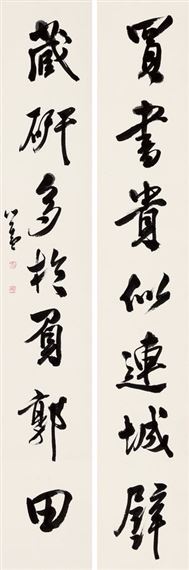 買書貴似連城璧
藏研多於負郭田
心畬